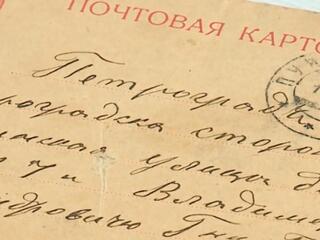 ПОЧТОВАЯ КАРТО
Петроградъ
роградска сторо
улица
7 и Владими
ндровичу Гни